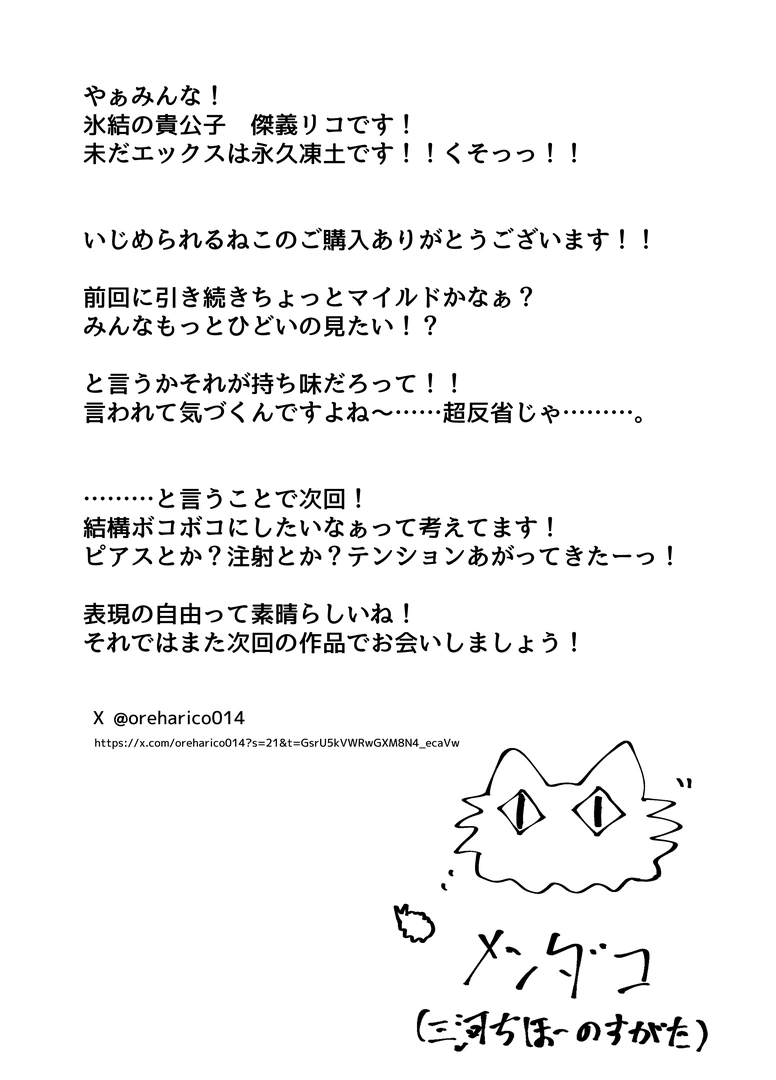 やぁみんな！
氷結の貴公子　傑義リコです！
未だエックスは永久凍土です！！くそっっ！！
いじめられるねこのご購入ありがとうございます！！
前回に引き続きちょっとマイルドかなぁ？
みんなもっとひどいの見たい！？
と言うかそれが持ち味だろって！！
言われて気づくんですよね～……超反省じゃ………。
………と言うことで次回！
結構ボコボコにしたいなぁって考えてます！
ピアスとか？注射とか？テンションあがってきたーっ！
表現の自由って素晴らしいね！
それではまた次回の作品でお会いしましょう！
X @oreharico014
https://x.com/oreharico014?s=21&t=GsrU5kVWRwGXM8N4_ecaVw
メンダコ
(三河ちほーのすがた)